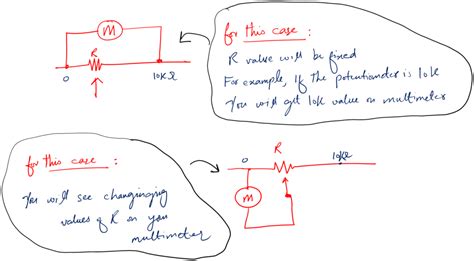 M
R
0
10KΩ
for this case :
R value will be fixed
For example, If the potentiometer is 10k
You will get 10k value on multimeter
for this case :
You will see changinging
values of R on you
multimeter
R
0
10kΩ
M